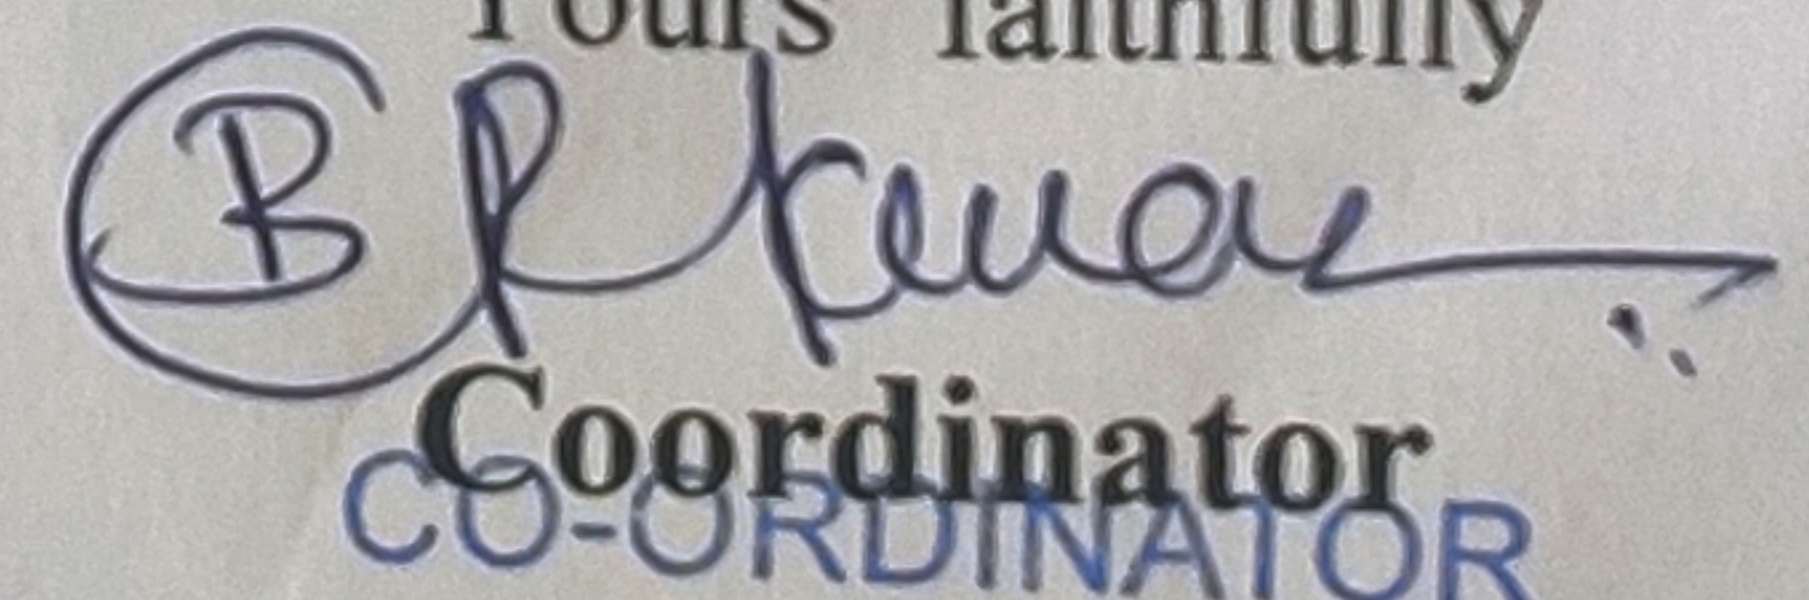 Yours faithfully
B P Kumar
Coordinator
CO-ORDINATOR